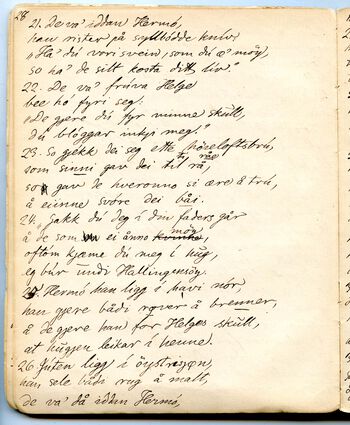 28
21. De va' iddan Hermó,
han rister på syllbódde kniv:
"Ha' dú vori svein, som dú æ' möy,
so ha' de sitt kosta ditt liv."
22. De va' frúva Helge
bee ho fyri seg:
"De gjere dú fyr munne skúll,
Dú blóggar inkji meg!"
23. So gjekk dei seg ette höieloftsbrú,
som sinni gav dei til rå,
so gav de kveronno si ære å trú,
å einne svóre dei båi.
24. "Gakk dú deg i din faders går
å de som ei ånno möy,
oftóm kjeme dú meg i húg,
eg búr undi Hallingenöy.
25. Hermó han ligg i havi nór,
han gjere bådi rover å brenner,
å de gjere han for Helges skúll,
at húgjen leikar i henne.
26. Júten ligg i öystrisjøn,
han sele bådi rug å malt,
de va' då iddan Hermó,